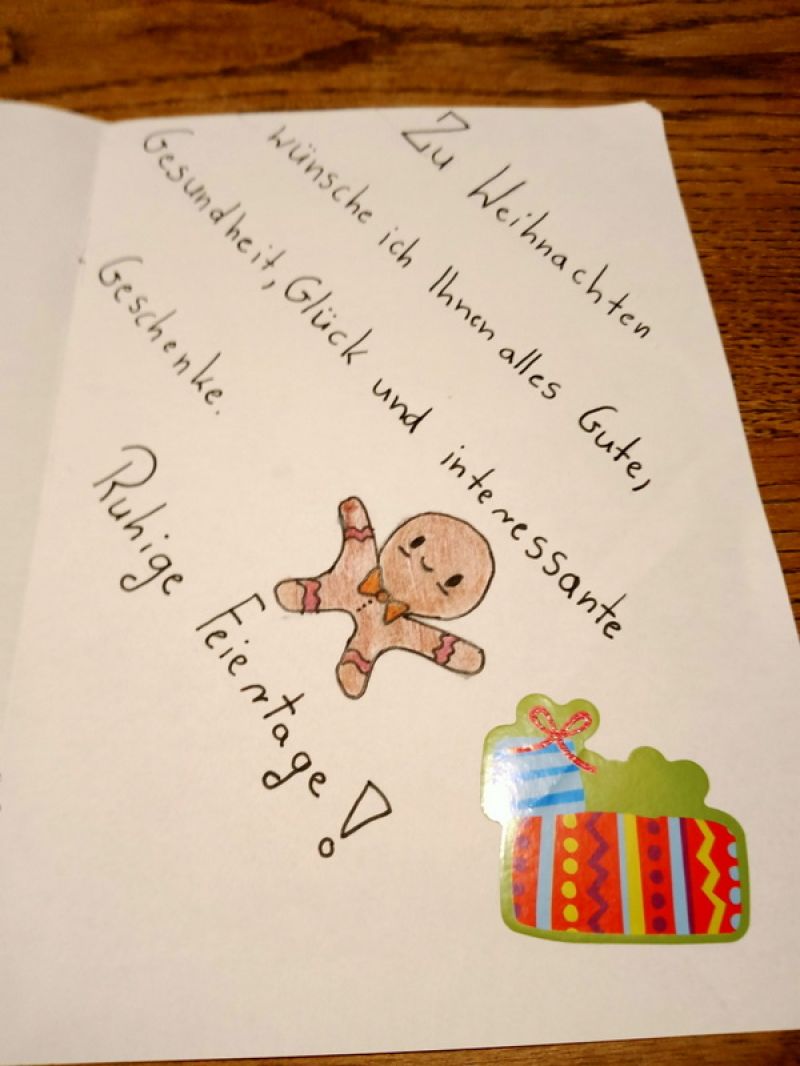 Zu Weihnachten
wünsche ich Ihnen alles Gute,
Gesundheit, Glück und interessante
Geschenke.
Ruhige Feiertage!